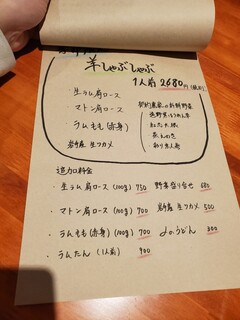 羊しゃぶしゃぶ
1人前 2680円(税別)
生ラム肩ロース
マトン肩ロース
ラムもも(赤身)
生ワカメ
契約農家のお新鮮野菜
追加料金
・生ラム肩ロース (100g) 750
野菜盛り合せ 680
・マトン肩ロース (100g) 700
生ワカメ 500
・ラムもも(赤身) (100g) 700
〆のうどん 300
・ラムたん (1人前) 900